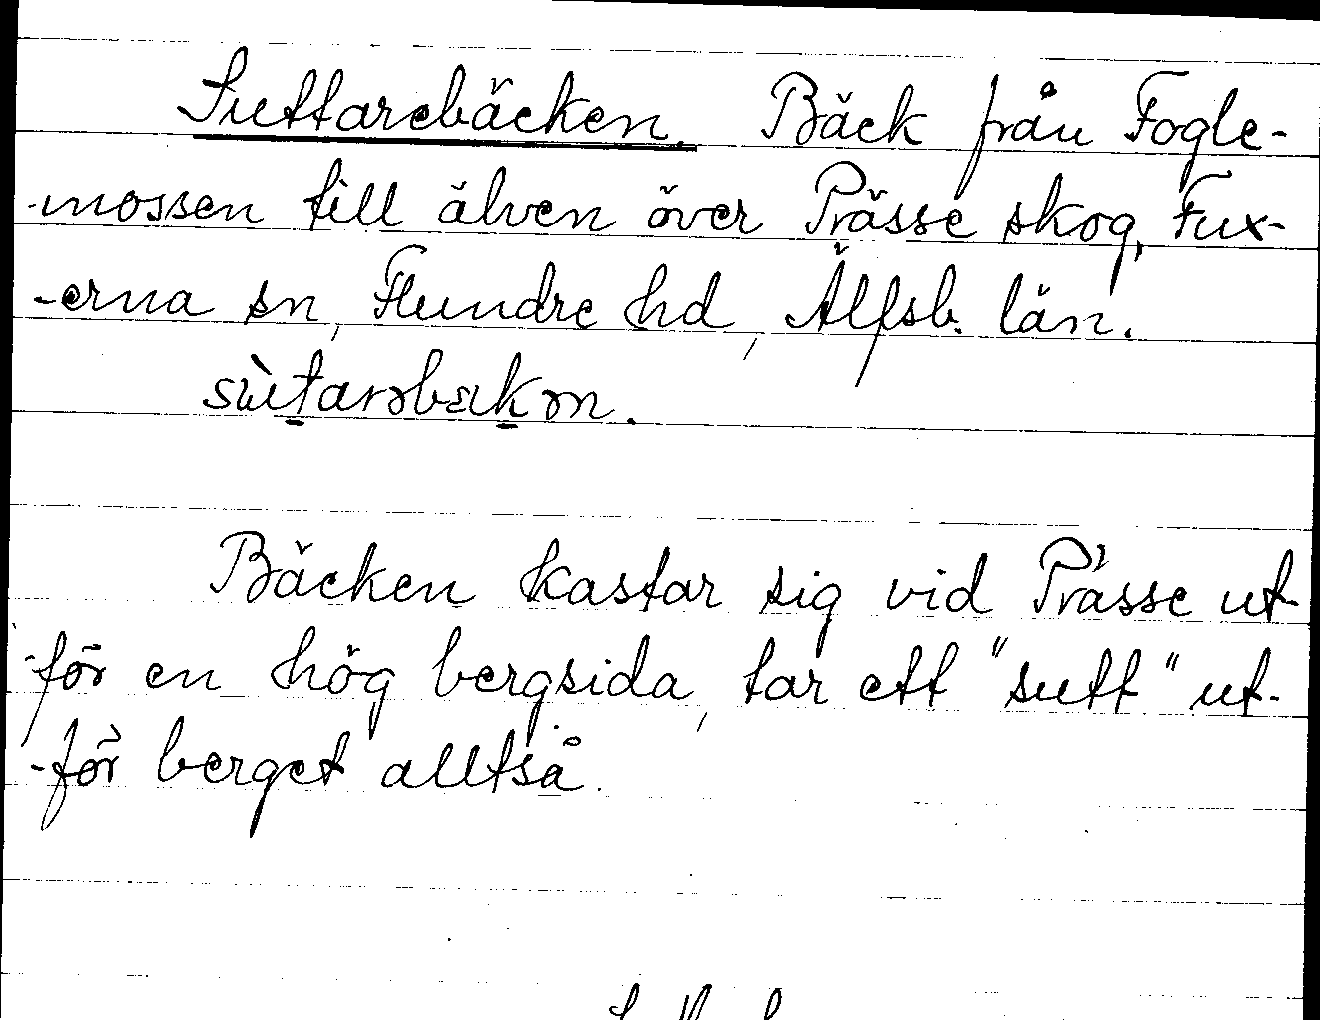 Suttarebäcken. Bäck från Fogle-
-mossen till älven över Prässe skog, Fux-
-erna sn, Flundre hd, Älfsb. län.
sùtarəbækən.
Bäcken kastar sig vid Prässe ut-
-för en hög bergsida, tar ett "sutt" ut-
-för berget alltså.